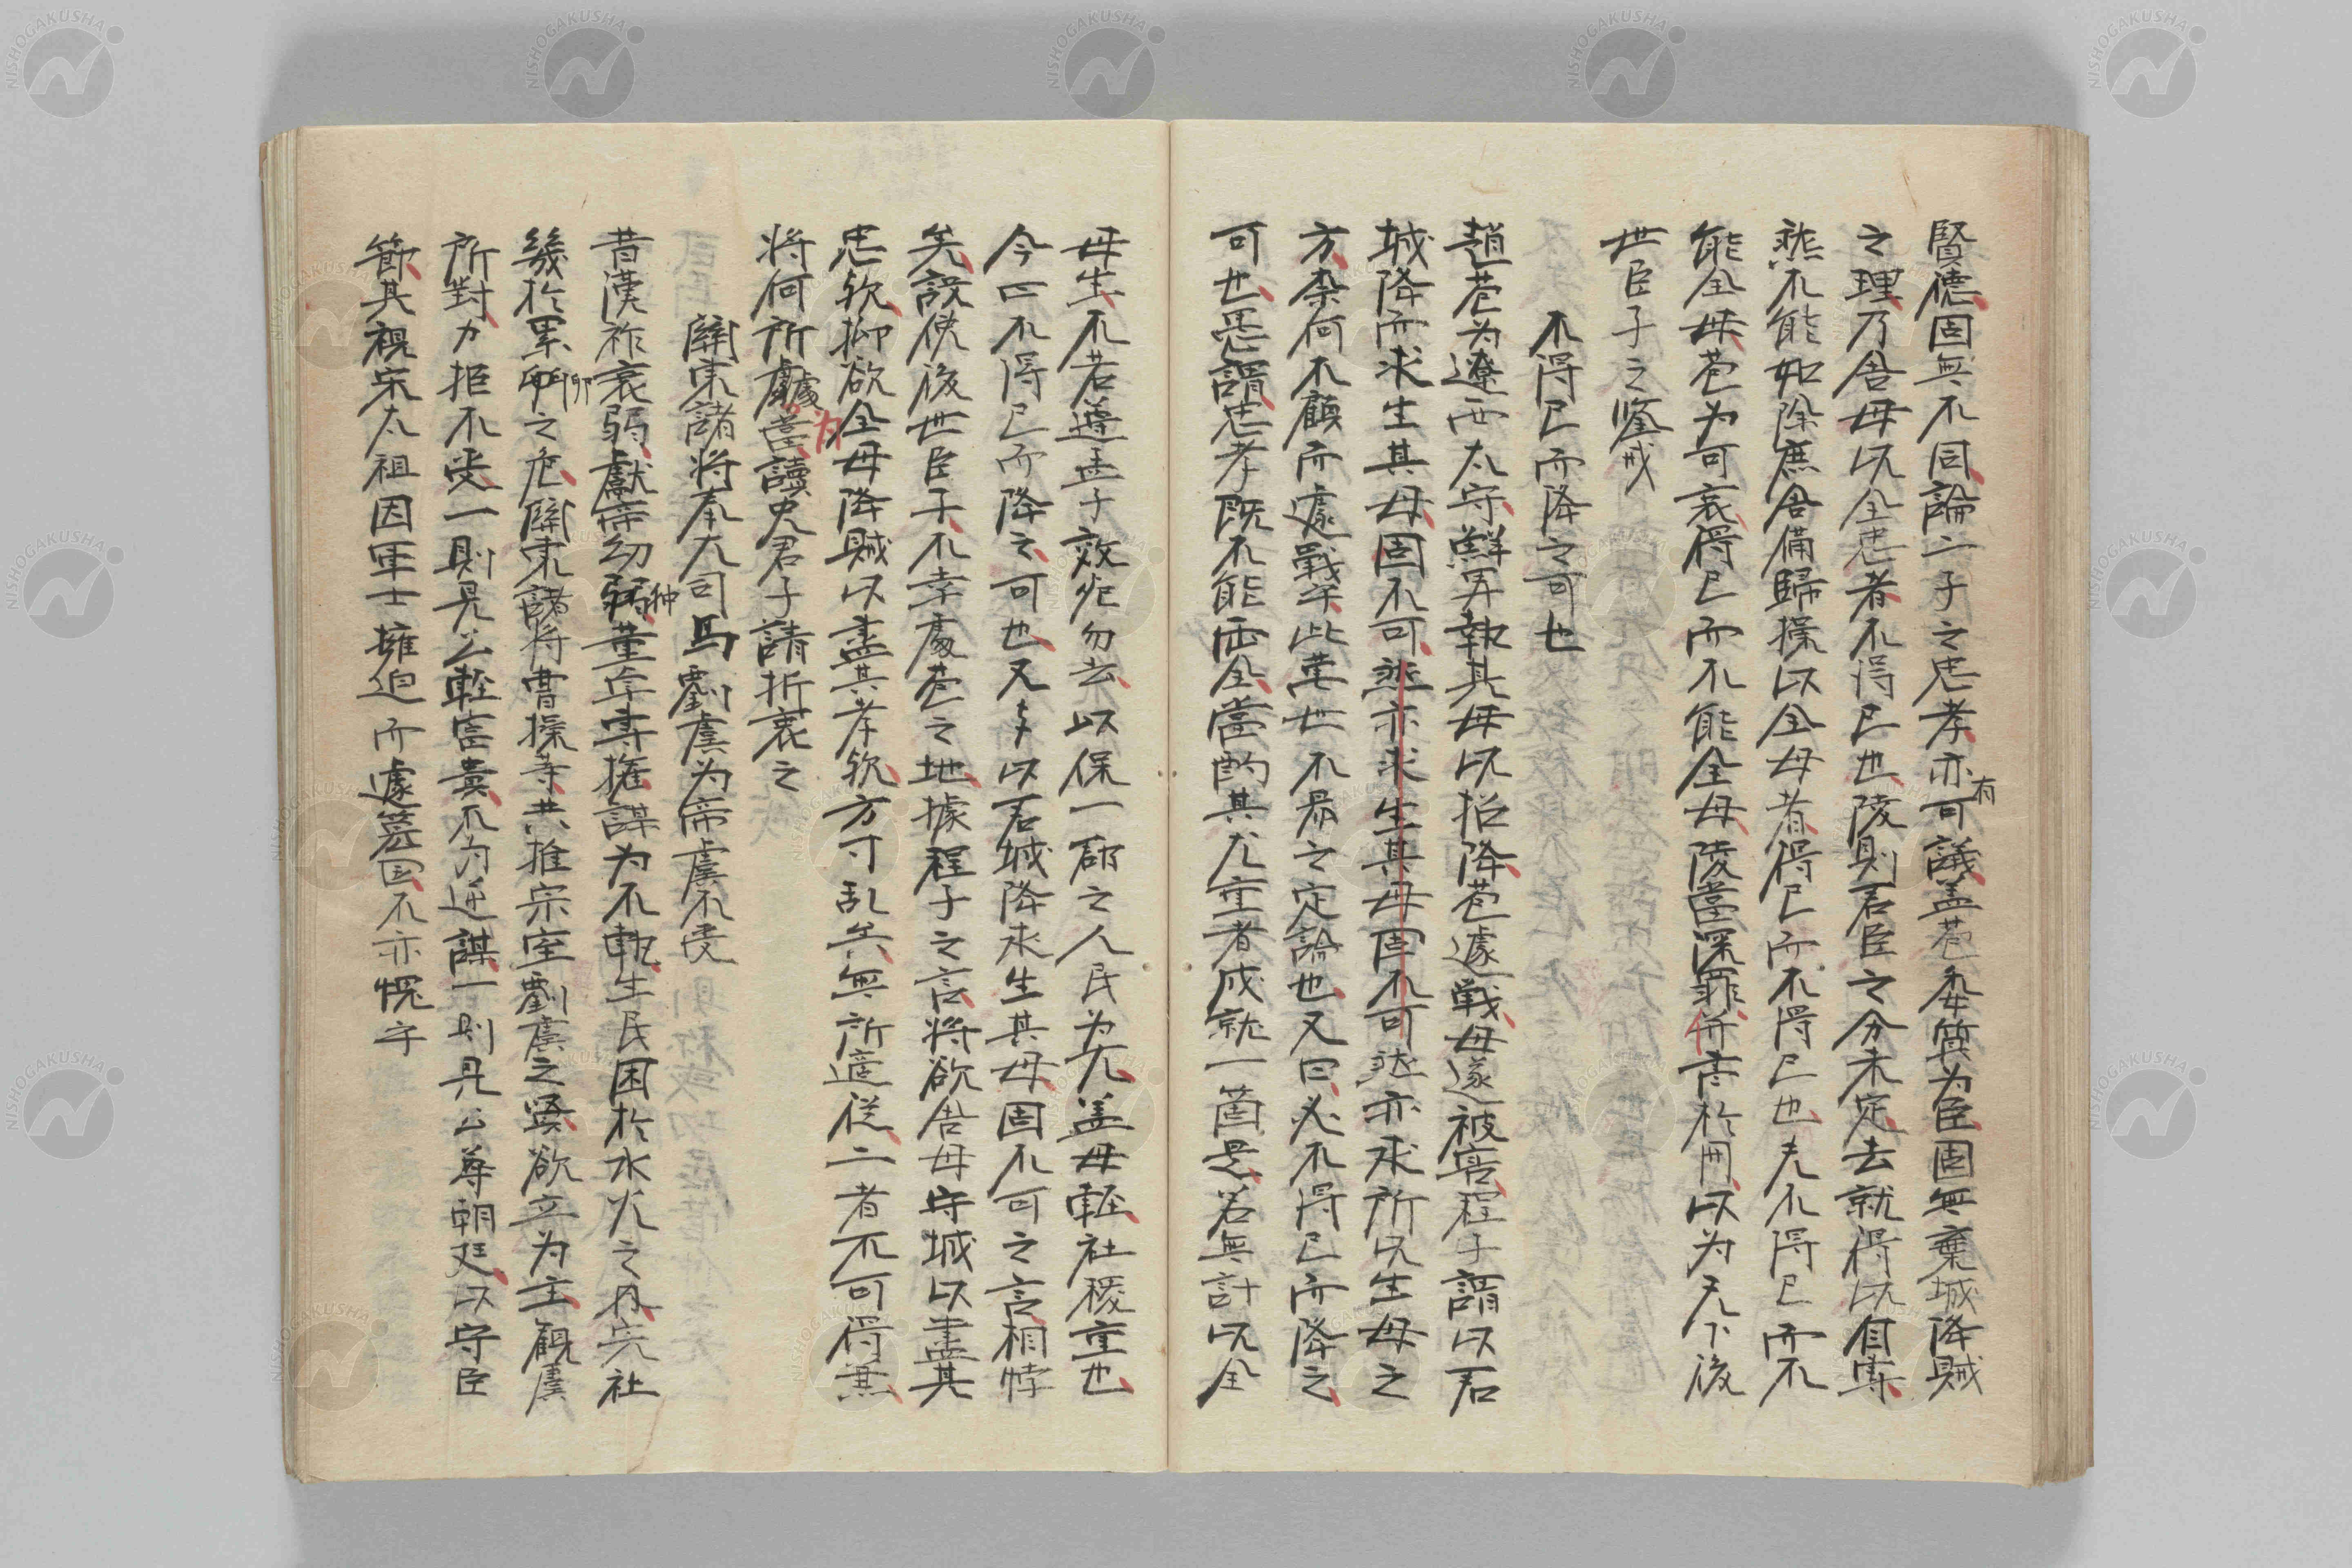 賢德固無不同論二子之忠孝亦有可議盖苞委質为臣固無棄城降賊
之理乃舍母以全忠者不得已也陵則君臣之分未定去就得以自專
然不能如除庶舍備歸操以全母者得已而不得已也夫不得已而不
能全母苞为可哀得已而不能全母陵當深罪併書於冊以为天下後
世臣子之鑒戒
不得已而降之可也
趙苞为遼西太守鮮卑執其母以招降苞遽戰母遂被害程子謂以君
城降而求生其母固不可然亦求生其母固不可然亦求所以生母之
方奈何不顧而遽戰乎此萬世不易之定論也又曰必不得已而降之
可也愚謂忠孝既不能両全當酌其尤重者成就一箇是若無計以全
母生不若遵孟子效死勿去以保一郡之人民为先盖母輕社稷重也
今曰不得已而降之可也又与以君城降求生其母固不可之言相悖
矣設使後世臣子不幸處苞之地據程子之言将欲舍母守城以盡其
忠欤抑欲全母降賊以盡其孝欤方寸乱矣無所適從二者不可得兼
将何所處為當讀史君子請折衷之
關東諸将奉大司馬劉虞为帝虞不受
昔漢祚衰弱獻帝幼冲董卓專權謀为不軌生民困於水火之内宗社
幾於累卵之危關東諸将曹操等共推宗室劉虞之賢欲立为主觀虞
所對力拒不受一則見公輕富貴不为逆謀一則見公尊朝廷以守臣
節其視宋太祖因軍士擁迫而遽簒国不亦愧乎